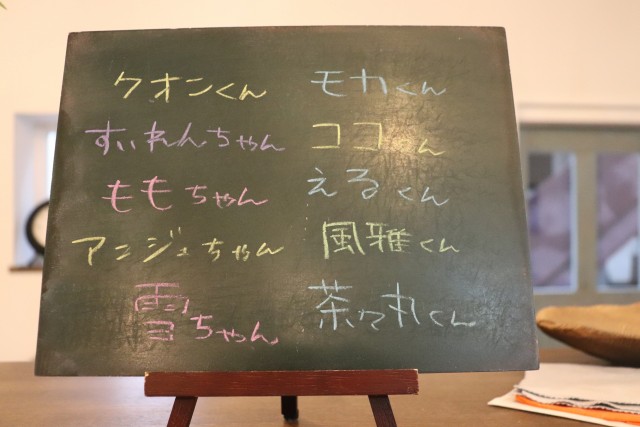 クオンくん
すいれんちゃん
ももちゃん
アンジュちゃん
雪ちゃん
モカくん
ココくん
えるくん
風雅くん
茶々丸くん